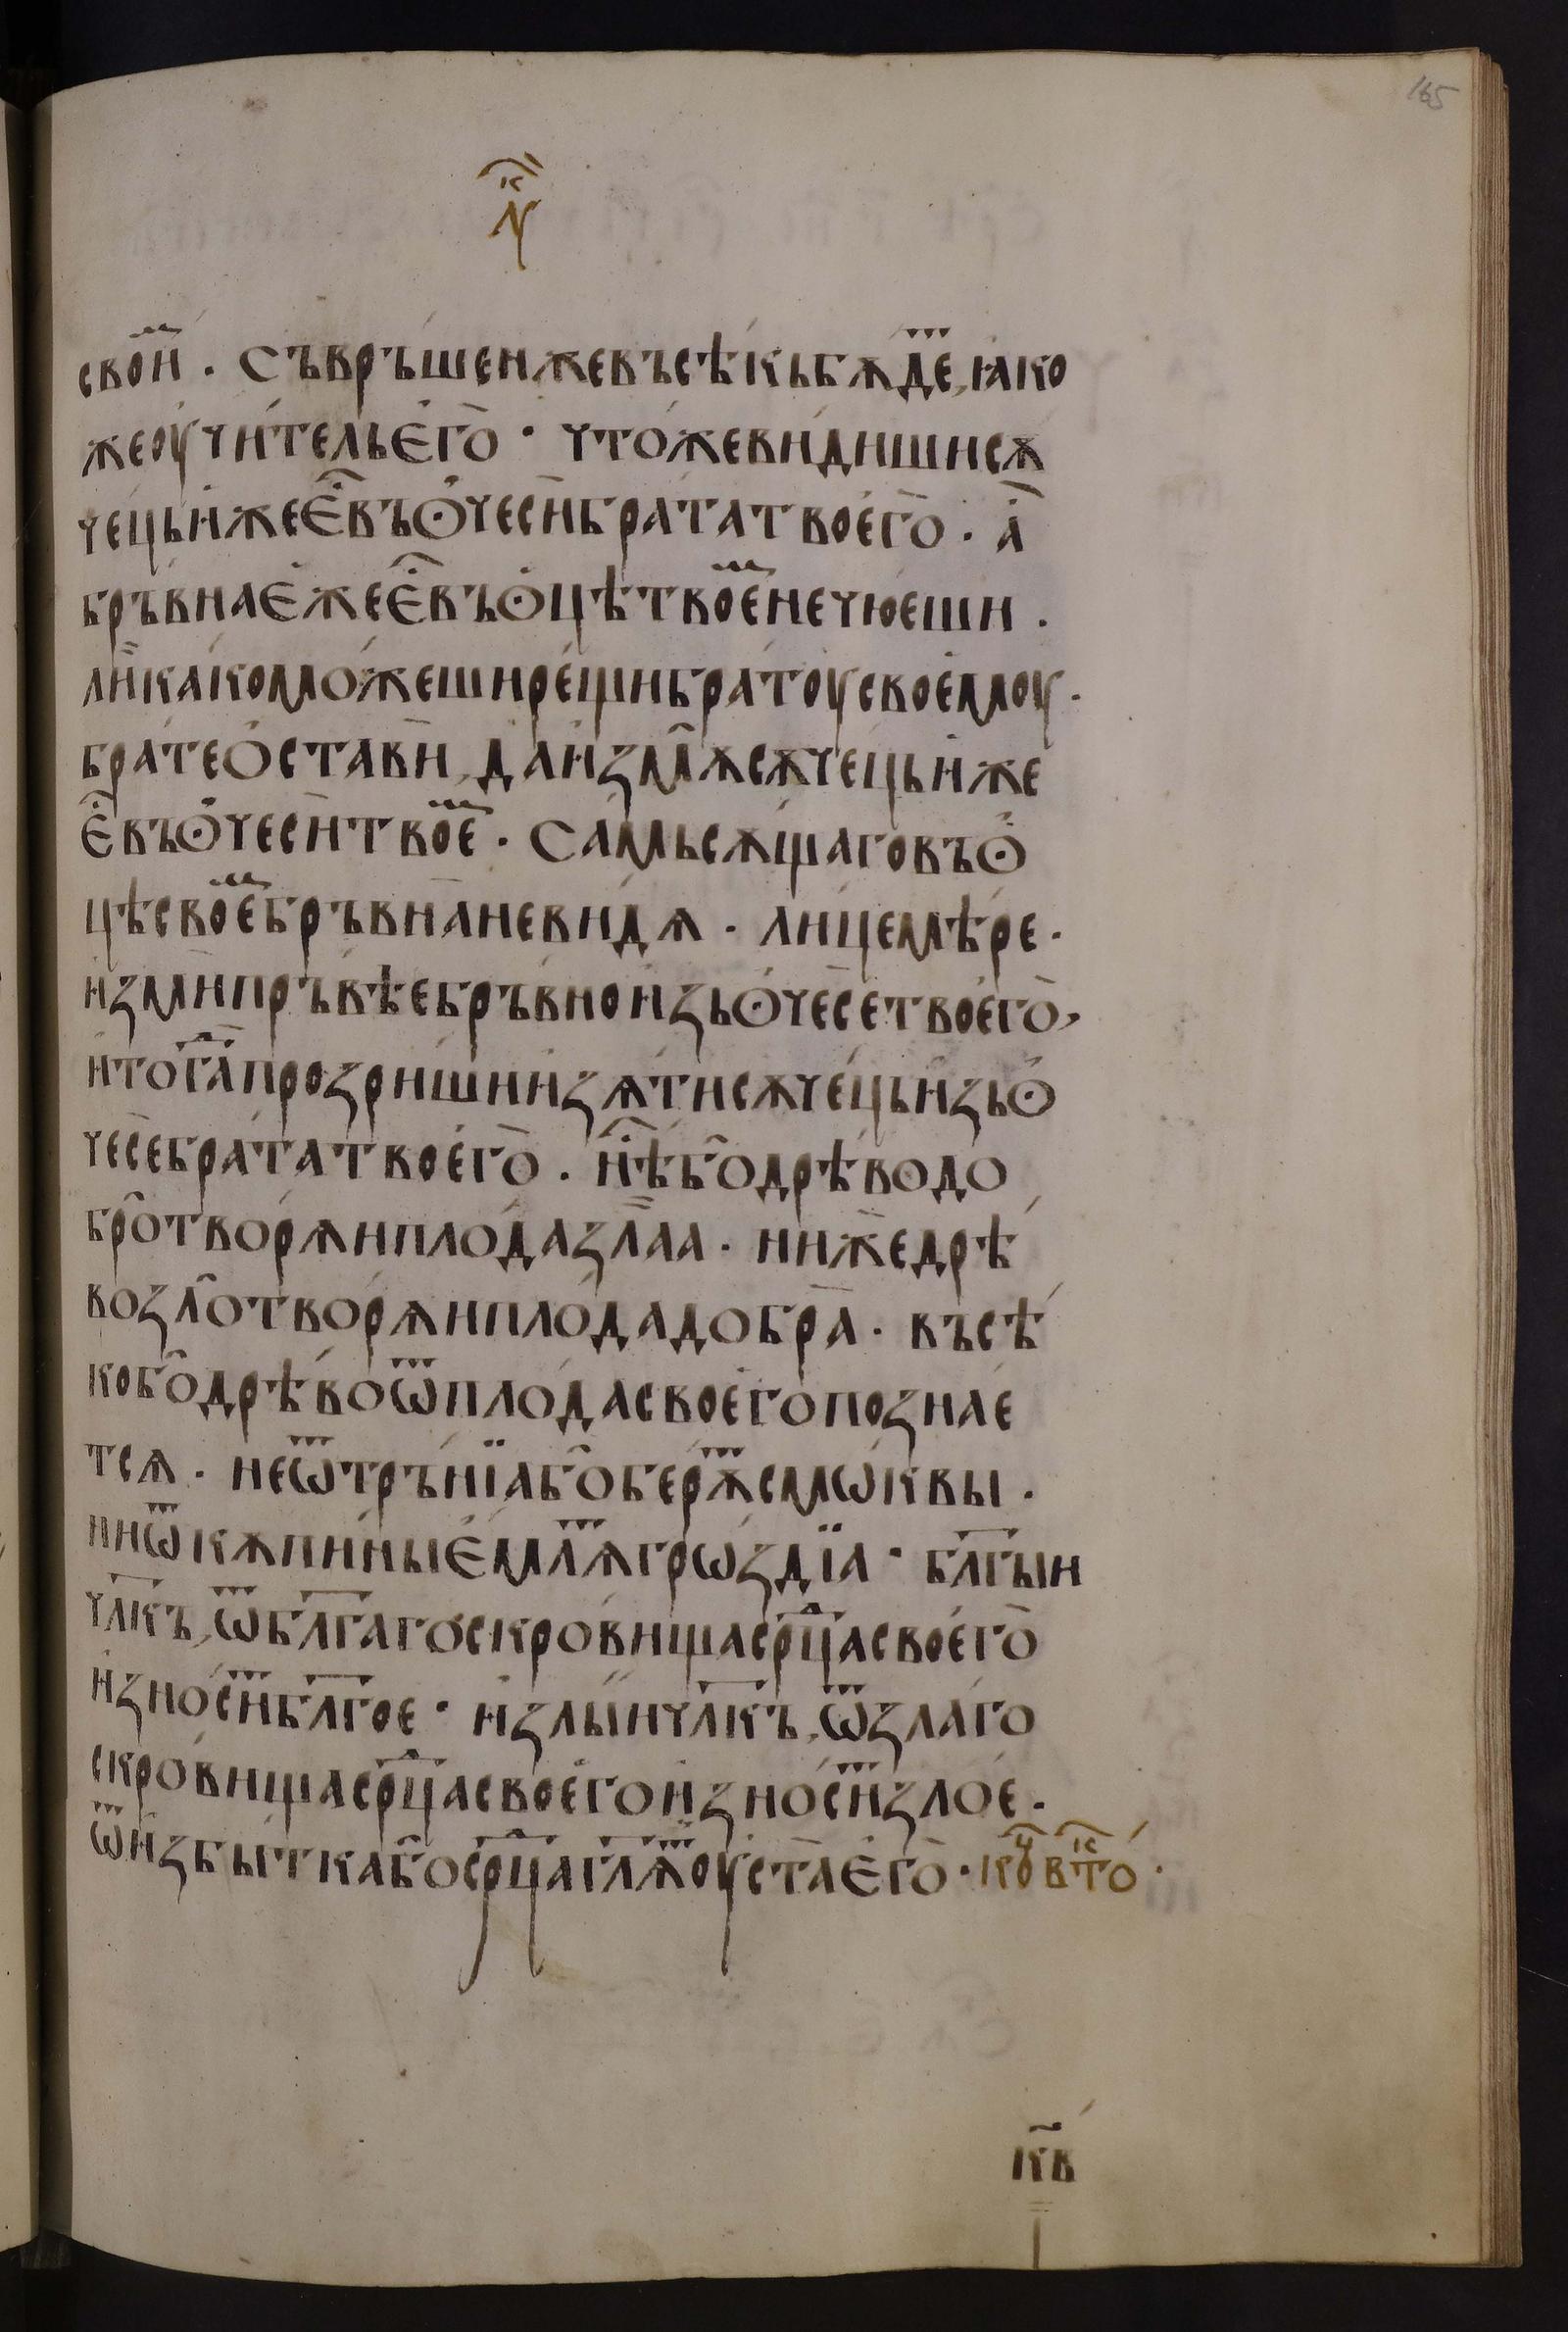 165
л҄к
свои҆ⷨ · Съвръ́шен же въсѣ́кь бѫ́деⷮ, ꙗ҆ко
же оу҆чи́тель є҆го̀ · что́ же ви́диши сѫ
чець и҆же є҆ⷭ҇ въ ꙩ҆чесѝ бра́та твое҆го̀ · а҆
бръ́вна є҆же є҆ⷭ҇ въ ꙩ҆цѣ твое҆ⷨ не чю́еши ·
лѝ ка́ко мо́жеши рещѝ бра́тоу свое҆моу ·
бра́те ѻ҆ста́ви, да и҆змⷨѫ сѫче́ць и҆же
є҆ⷭ҇ въ ꙩ҆чесѝ твое҆ⷨ · Самь сѫ́щаго въ ꙩ҆
цѣ свое҆ⷨ бръвна̀ не ви́дѧ · лицемѣ́ре ·
и҆змѝ пръ́вѣе бръвно̀ и҆зь ꙩ҆чесѐ твое҆го̀,
и҆ тогⷣа̀ про́зриши и҆зѧ́ти сѫче́ць и҆зь ꙩ҆
чесѐ бра́та твое҆го̀ · нⷭ҇ѣ бо̂ дрѣ́во до
бро̂ творѧ́ и плода̀ зла̀а · нижѐ дрѣ́
во зло̂ творѧ́ и плода̀ добра̀ · въсѣ́
ко бо̂ дрѣ́во ѿ плода̀ свое҆го̀ познае
тсѧ · не ѿ тръ́нїа бо̂ берѫⷮ смѡ́квы ·
ни ѿ кѫпины̀ є҆млѧⷮ грѡ́здїа · бл҃гыи
чл҃къ, ѿ бл҃га́го скро́вища срⷣца свое҆го̀
и҆зно́сиⷮ бл҃гое · и҆ злы́и чл҃къ, ѿ зла́го
скро́вища срⷣца свое҆го и҆зно́сиⷮ злое ·
ѿ и҆збы́тка бо̂ срⷣца гл҃ѧⷮ оу҆ста̀ є҆го̀ · коⷰ҇ втоⷦ ·
к҃в